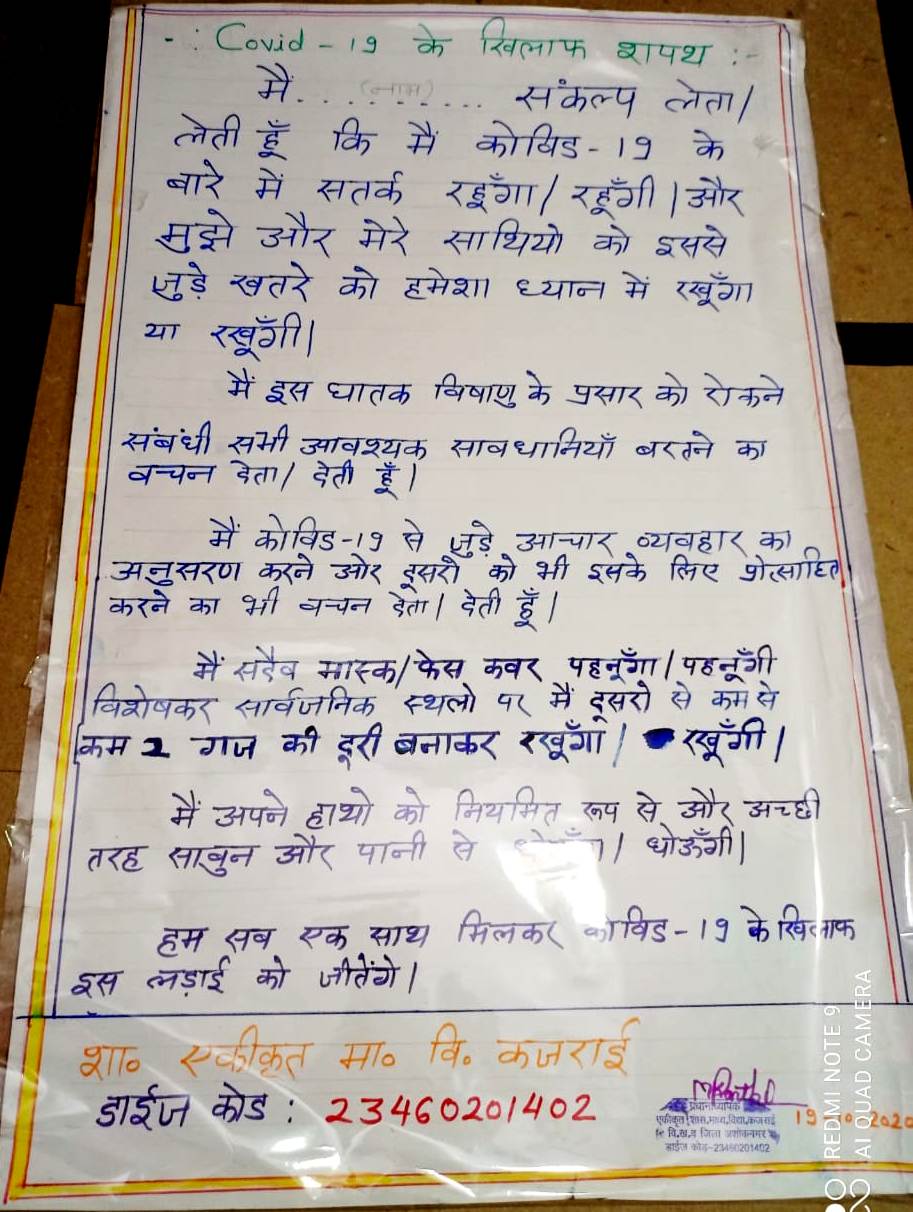 -: Covid-19 के खिलाफ शपथ :-
मैं. . . (नाम) . . . . संकल्प लेता/
लेती हूँ कि मैं कोविड-19 के
बारे में सतर्क रहूँगा/ रहूँगी | और
मुझे और मेरे साथियो को इससे
जुड़े खतरे को हमेशा ध्यान में रखूँगा
या रखूँगी|
मैं इस घातक विषाणु के प्रसार को रोकने
संबंधी सभी आवश्यक सावधानियाँ बरतने का
वचन देता/ देती हूँ |
मैं कोविड-19 से जुड़े आचार व्यवहार का
अनुसरण करने और दूसरो को भी इसके लिए प्रोत्साहित
करने का भी वचन देता| देती हूँ |
मैं सदैव मास्क/फेस कवर पहनूँगा/पहनूँगी
विशेषकर सार्वजनिक स्थलो पर मैं दूसरो से कम से
कम 2 गज की दूरी बनाकर रखूँगा / रखूँगी |
मैं अपने हाथो को नियमित रूप से और अच्छी
तरह साबुन और पानी से / धोऊँगी|
हम सब एक साथ मिलकर कोविड-19 के खिलाफ
इस लड़ाई को जीतेंगे |
शा० एकीकृत मा० वि. कजराई
डाईज कोड : 23460201402
प्रधानाध्यापक
एकीकृत शास.माध्य.विद्या.कजराई
वि.ख.व जिला अशोकनगर
डाईज कोड-23460201402
19 10 2020
REDMI NOTE 9
AI QUAD CAMERA